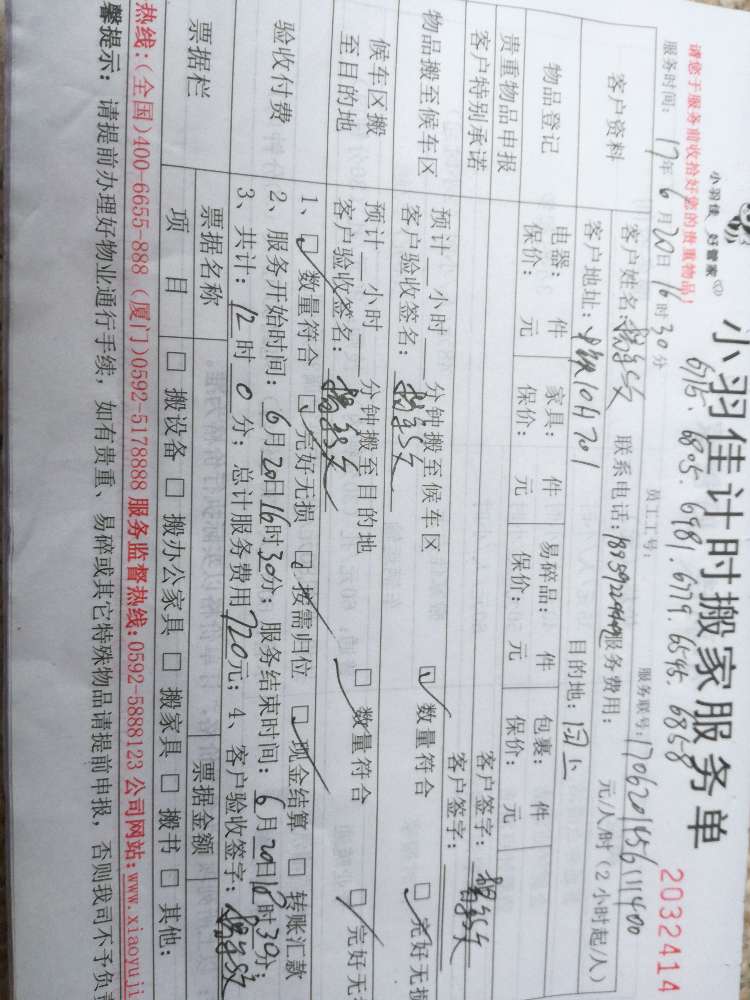 小羽佳 好管家
小羽佳计时搬家服务单
2032414
6715. 6805. 6981. 6779. 6545. 6858
请您于服务前收拾好您的贵重物品!
员工工号:
服务联号:170620145611400
服务时间: 17年6月20日16时30分
客户资料
客户姓名:
联系电话:
服务费用: 元/人/时(2小时起/人)
客户地址: 701
目的地:同上
物品登记
电器: 件 家具: 件 易碎品: 件 包裹: 件
贵重物品申报
保价: 元 保价: 元 保价: 元 保价: 元
客户特别承诺
客户签字:
客户签字:
物品搬至候车区
预计 小时 分钟搬至候车区
客户验收签名: 数量符合 完好无损
候车区搬至目的地
预计 小时 分钟搬至目的地
客户验收签名: 数量符合 完好无
验收付费
1、 数量符合 完好无损 按需归位 现金结算 转账汇款
2、服务开始时间: 6月20日16时30分; 服务结束时间: 6月20日18时30分;
3、共计: 12时0分; 总计服务费用720元; 4、客户验收签字:
票据栏
票据名称 票据金额
项目 搬设备 搬办公家具 搬家具 搬书 其他:
热线:(全国)400-6655-888 (厦门)0592-5178888 服务监督热线:0592-5888123 公司网站:www.xiaoyuji
馨提示: 请提前办理好物业通行手续, 如有贵重、易碎或其它特殊物品请提前申报, 否则我司不予负责